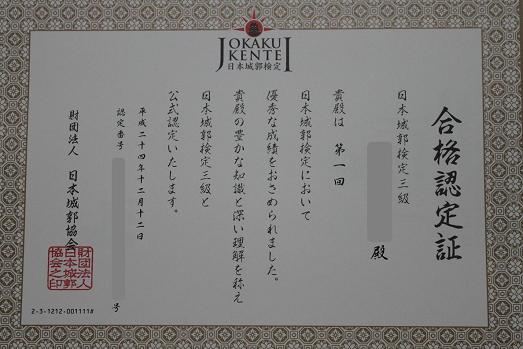 JOKAKU
KENTEI
日本城郭検定
合格認定証
日本城郭検定三級
殿
貴殿は 第一回
日本城郭検定において
優秀な成績をおさめられました。
貴殿の豊かな知識と深い理解を称え
日本城郭検定三級と
公式認定いたします。
平成二十四年十二月十二日
認定番号
号
財団法人 日本城郭協会
財団法人
日本城郭
協会之印
2-3-1212-001111#